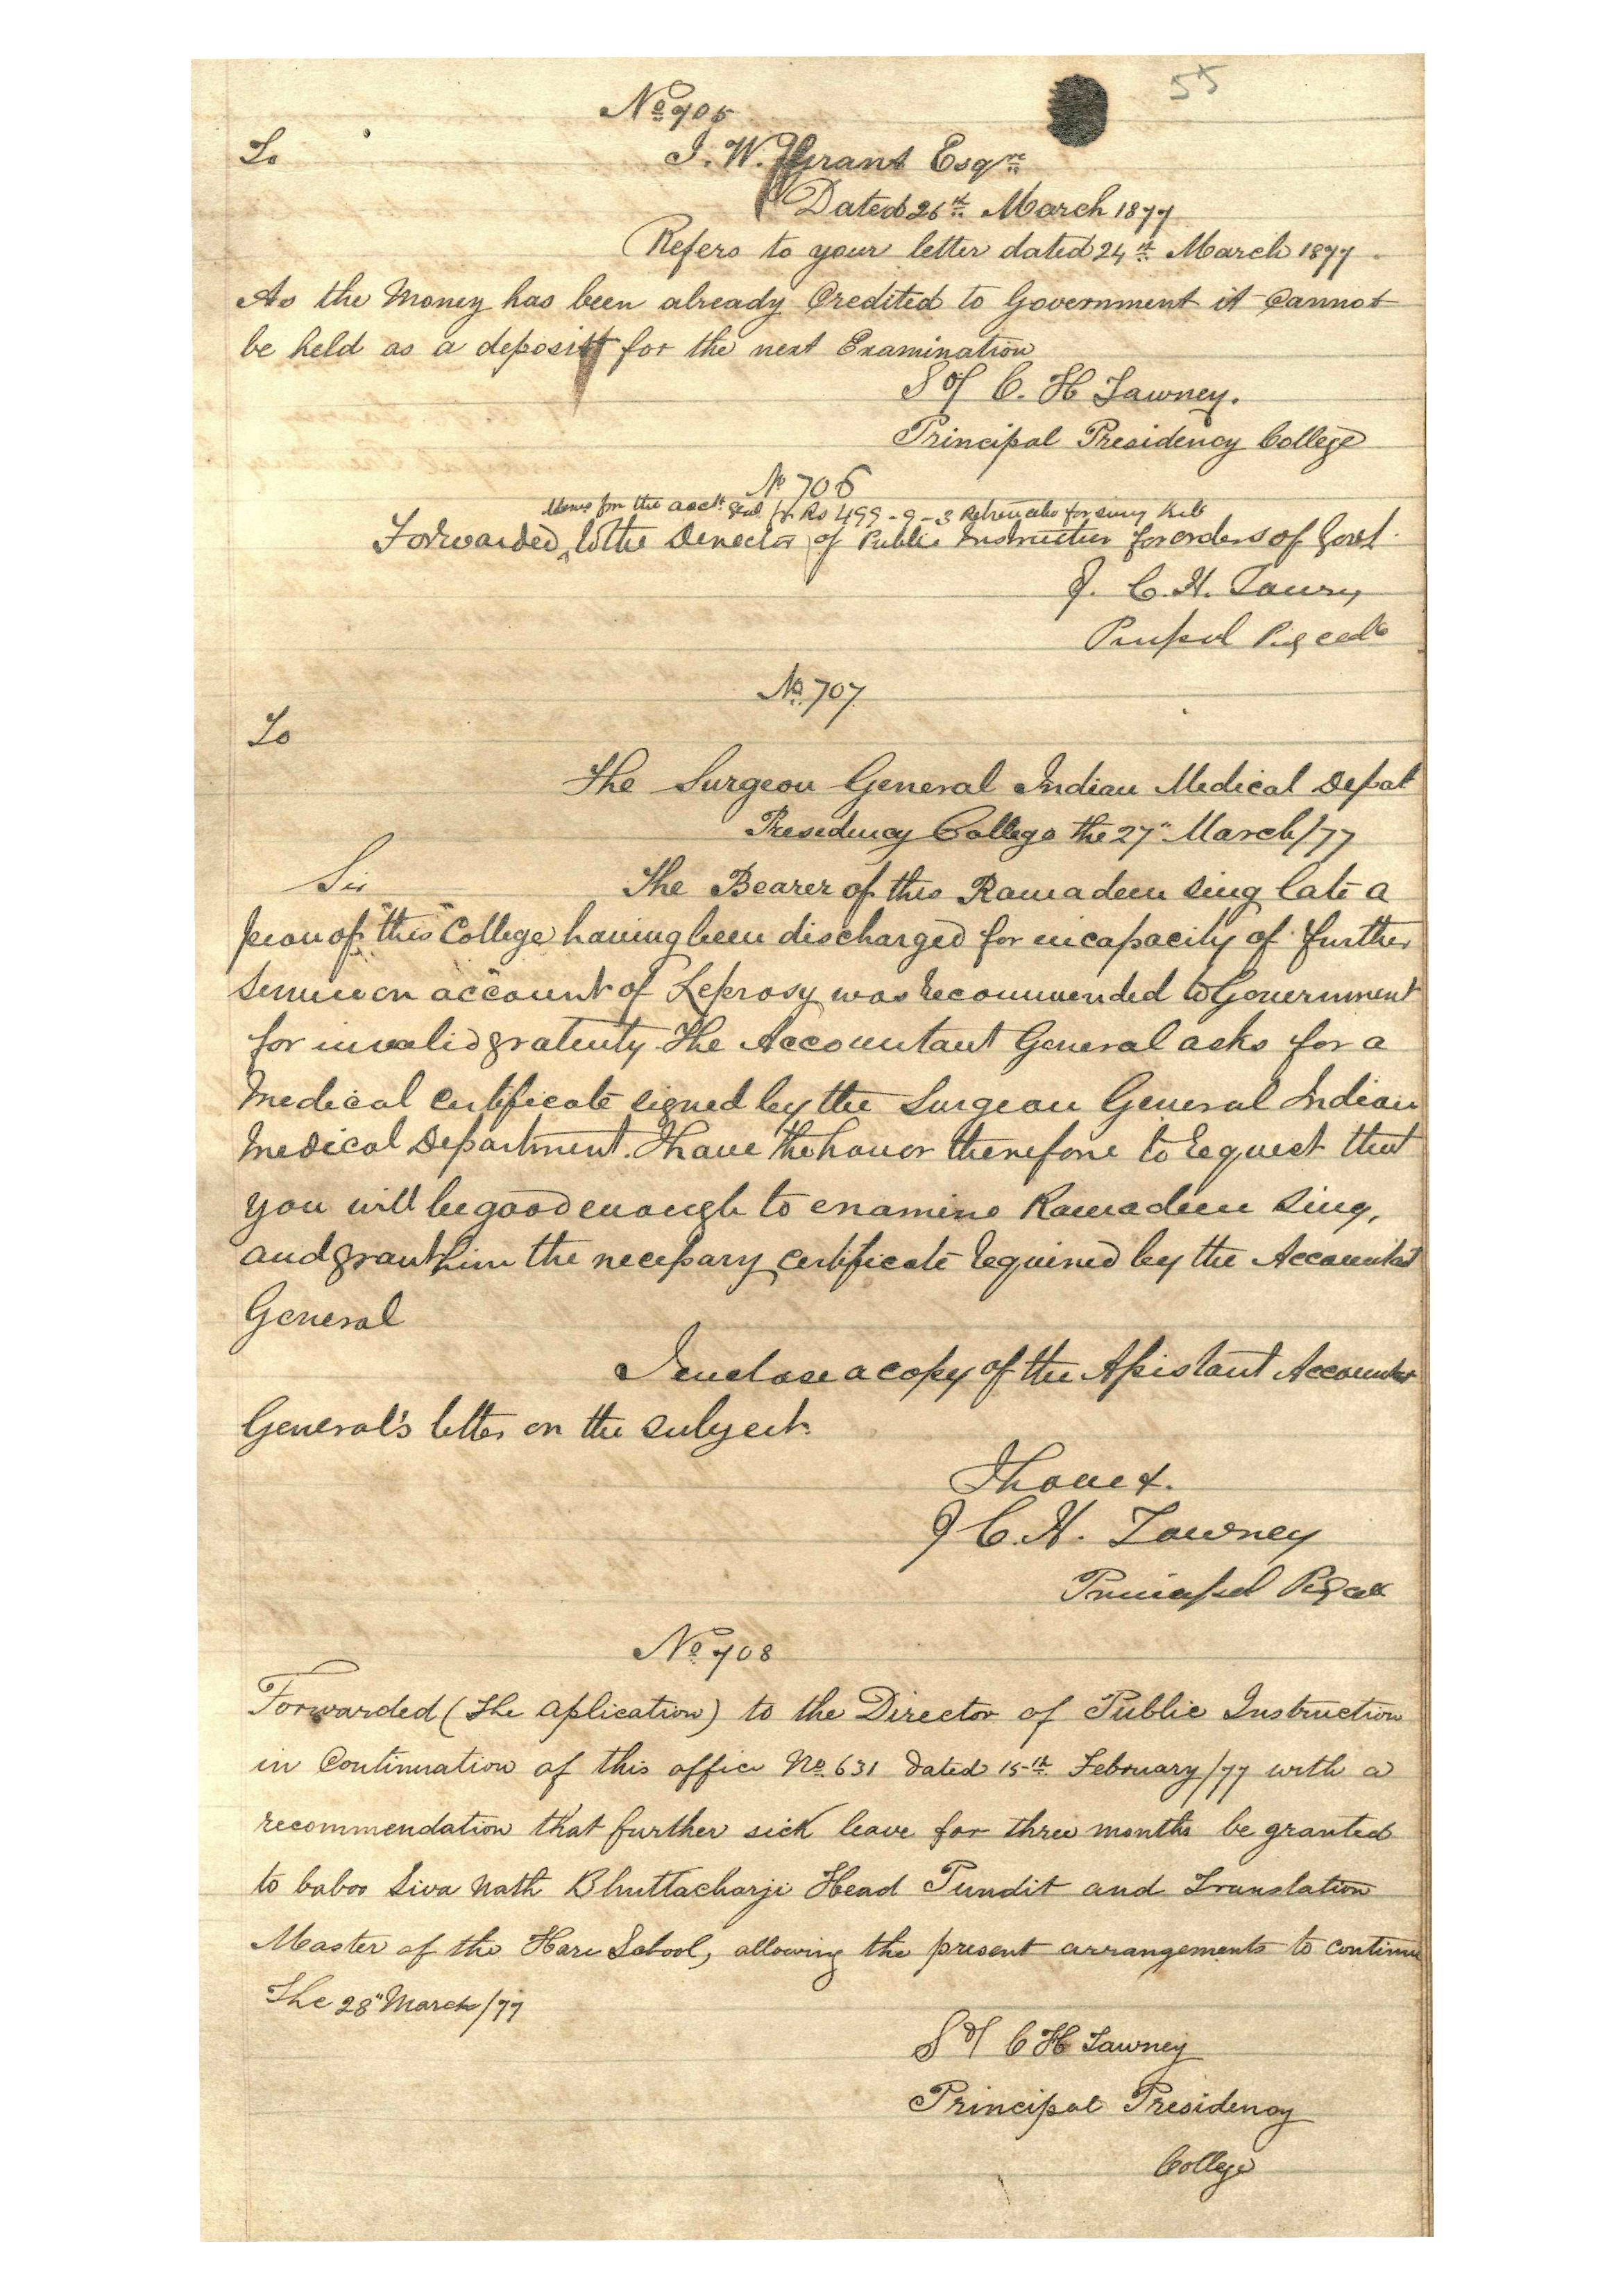 55
No 705
To
J. W. Grant Esqre
Dated 26th March 1877
Refers to your letter dated 24th March 1877.
As the Money has been already Credited to Government it Cannot
be held as a deposit for the next Examination
Sd/ C. H Tawney.
Principal Presidency College
No 706
for the acct. Genl for Rs 499-9-3
Forwarded to the Director of Public Instruction for orders of Govt.
C. H. Tawney
No. 707
To
The Surgeon General Indian Medical Depat
Presidency College the 27" March/77
Sir
The Bearer of this Ramadeen Sing late a
peon of "this" College having been discharged for incapacity of further
service on account of Leprosy was recommended to Government
for invalid gratuity The Accountant General asks for a
Medical certificate signed by the Surgeon General Indian
Medical Department. I have the honor therefore to request that
you will be good enough to examine Ramadeen Sing,
and grant him the necessary certificate required by the Accountant
General
I enclose a copy of the Assistant Accountant
General's letter on the subject.
I have &.
C. H. Tawney
Principal
No 708
Forwarded (the aplication) to the Director of Public Instruction
in Continuation of this office No. 631 dated 15th February/77 with a
recommendation that further sick leave for three months be granted
to baboo Siva Nath Bhuttacharji Head Pundit and Translation
Master of the Hare School, allowing the present arrangements to continue
The 28" March/77
Sd/ C H Tawney
Principal Presidency
College